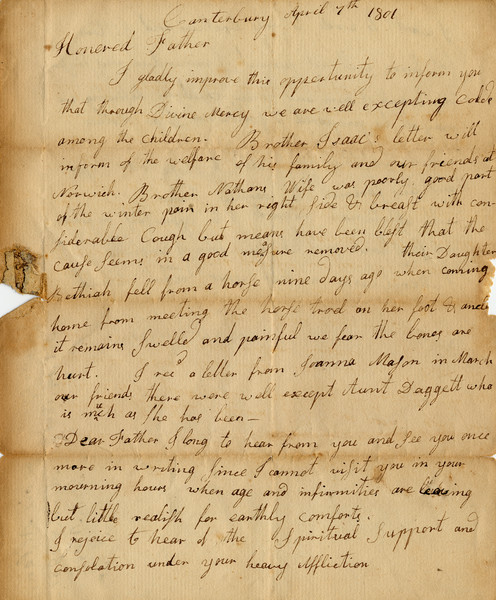 Canterbury April 7th 1801
Honered Father
I gladly improve this oppertunity to inform you
that through Divine Mercy we are well excepting Colds
among the children. Brother Isaacs letter will
inform of the welfare of his family and our friends at
Norwich. Brother Nathans Wife was poorly good part
of the winter pain in her right side & breast with con-
siderable Cough but means have been blest that the
cause seems in a good measure removed. their Daughter
Bethiah fell from a horse nine days ago when coming
home from meeting the horse trod on her foot & ancle
it remains swelled and painful we fear the bones are
hurt. I recd a letter from Joanna Mason in March
our friends there were well except Aunt Daggett who
is much as she has been —
Dear Father I long to hear from you and see you once
more in writing since I cannot visit you in your
mourning hours when age and infirmities are leaving
but little realish for earthly comforts.
I rejoice to hear of the Spiritual Support and
consolation under your heavy Affliction